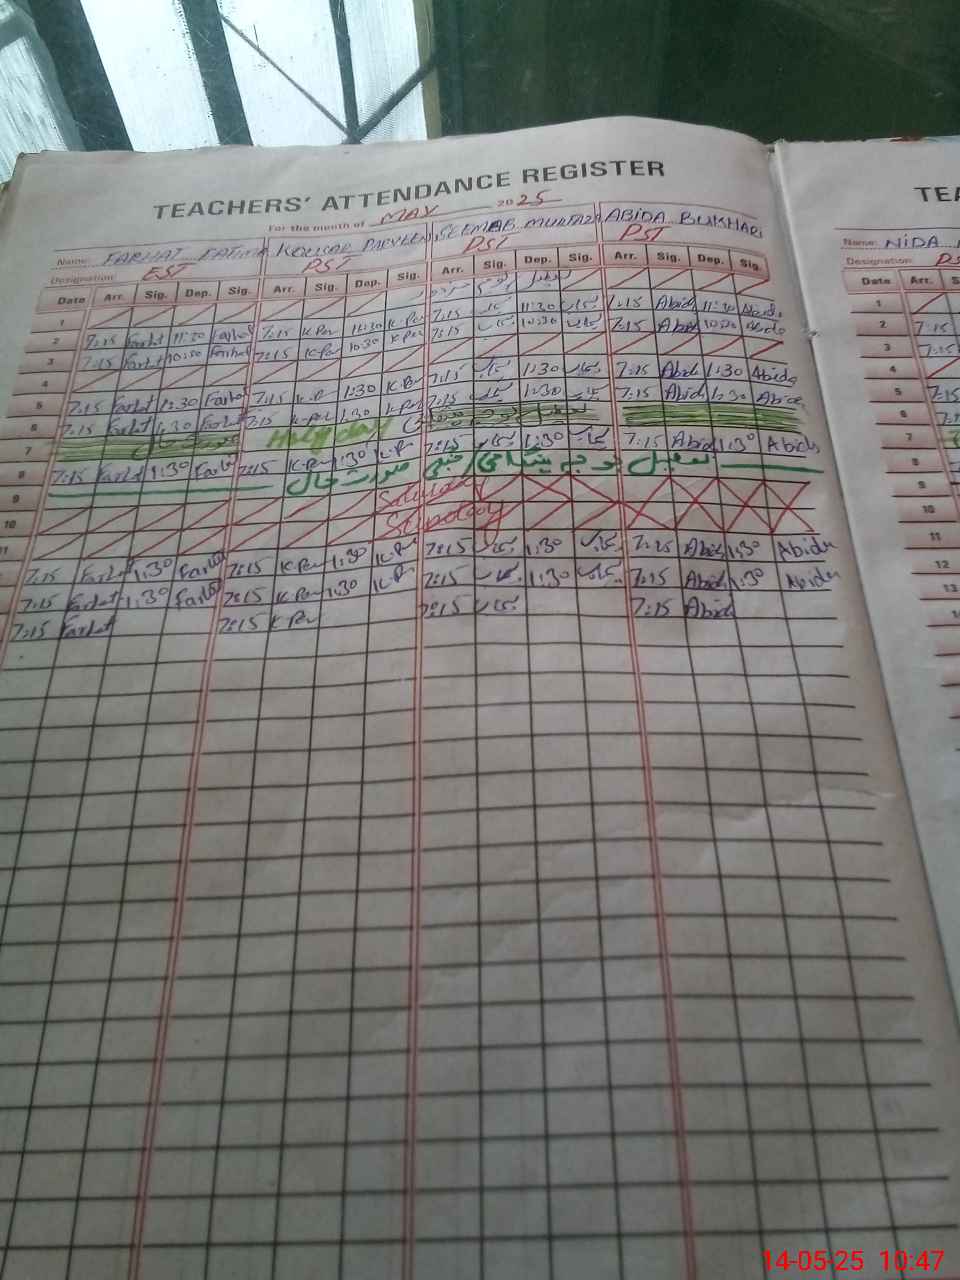 TEACHERS' ATTENDANCE REGISTER
TEA
For the month of MAY 2025
Name: FARHAT FATIMA KOUSAR PARVEEN SEEMAB MURTAZA ABIDA BUKHARI
Name: NIDA
Designation: EST PST PST PST
Designation: PS
Date Arr. Sig. Dep. Sig. Arr. Sig. Dep. Sig. Arr. Sig. Dep. Sig. Arr. Sig. Dep. Sig.
Date Arr. S
1
2 7:15 Farhat 11:30 Farhat 7:15 K Par 11:30 K Par 7:15 11:30 7:15 Abida 11:30 Abida
3 7:15 Farhat 10:30 Farhat 7:15 K Par 10:30 K Par 7:15 10:30 7:15 Abida 10:30 Abida
4
5 7:15 Farhat 1:30 Farhat 7:15 K.P 1:30 K Par 7:15 1:30 7:15 Abida 1:30 Abida
6 7:15 Farhat 1:30 Farhat 7:15 K Par 1:30 K Par 7:15 1:30 7:15 Abida 1:30 Abida
7 Holiday تعطیل بوجہ
8 7:15 Farhat 1:30 Farhat 7:15 K Par 1:30 K.P 7:15 1:30 7:15 Abida 1:30 Abida
9 تعطیل بوجہ ہنگامی / جنگی صورت حال
10 Saturday
11 Sunday
7:15 Farhat 1:30 Farhat 7:15 K Par 1:30 K.P 7:15 1:30 7:15 Abida 1:30 Abida
7:15 Farhat 1:30 Farhat 7:15 K Par 1:30 K.P 7:15 1:30 7:15 Abida 1:30 Abida
7:15 Farhat 7:15 K Par 7:15 7:15 Abida
1
2 7:15
3 7:15
4
5 7:15
6 7:15
7
8
9
10
11
12
13
14-05-25 10:47